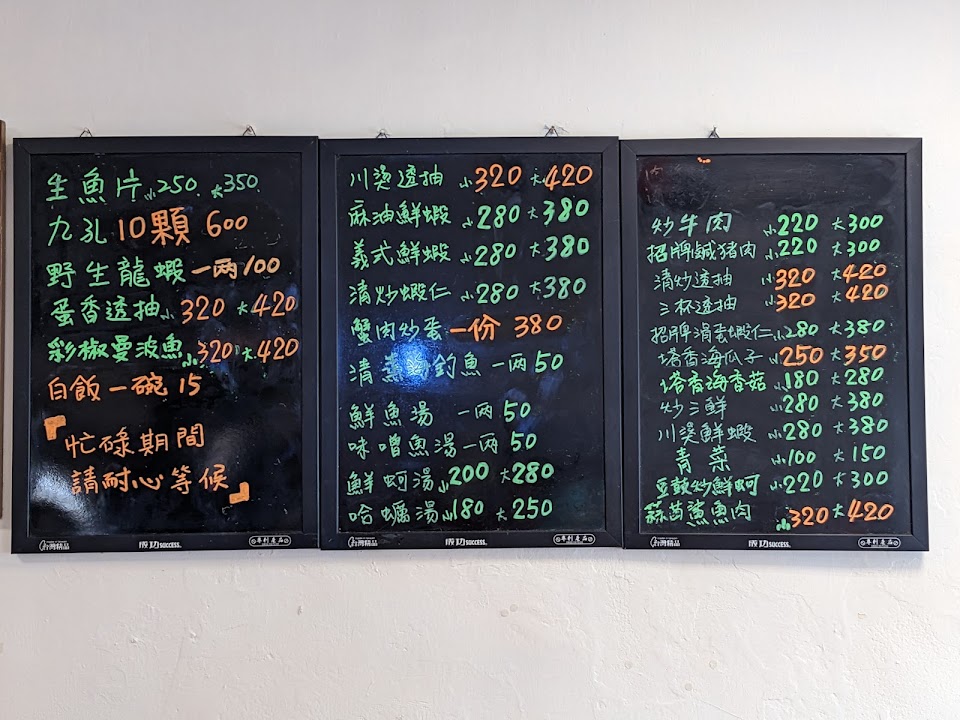 生魚片 小250. 大350.
九孔 10顆 600
野生龍蝦 一両100
蛋香透抽 小320 大420
彩椒曼波魚 小320 大420
白飯 一碗 15
『忙碌期間
請耐心等候』
台灣精品 成功 SUCCESS. 專利產品
川燙透抽 小320 大420
麻油鮮蝦 小280 大380
義式鮮蝦 小280 大380
清炒蝦仁 小280 大380
蟹肉炒蛋 一份 380
清蒸 釣魚 一両50
鮮魚湯 一両 50
味噌魚湯 一両 50
鮮蚵湯 小200 大280
哈蠣湯 小180 大250
台灣精品 成功 SUCCESS. 專利產品
炒牛肉 小220 大300
招牌鹹豬肉 小220 大300
清炒透抽 小320 大420
三杯透抽 小320 大420
招牌滑蛋蝦仁 小280 大380
塔香海瓜子 小250 大350
塔香海香菇 小180 大280
炒三鮮 小280 大380
川燙鮮蝦 小280 大380
青菜 小100 大150
豆豉炒鮮蚵 小220 大300
蒜苗鯊魚肉 小320 大420
台灣精品 成功 SUCCESS. 專利產品